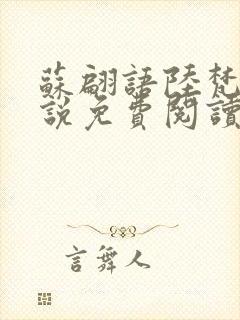 蘇翩語陸梵
說免費閱讀
言舞人